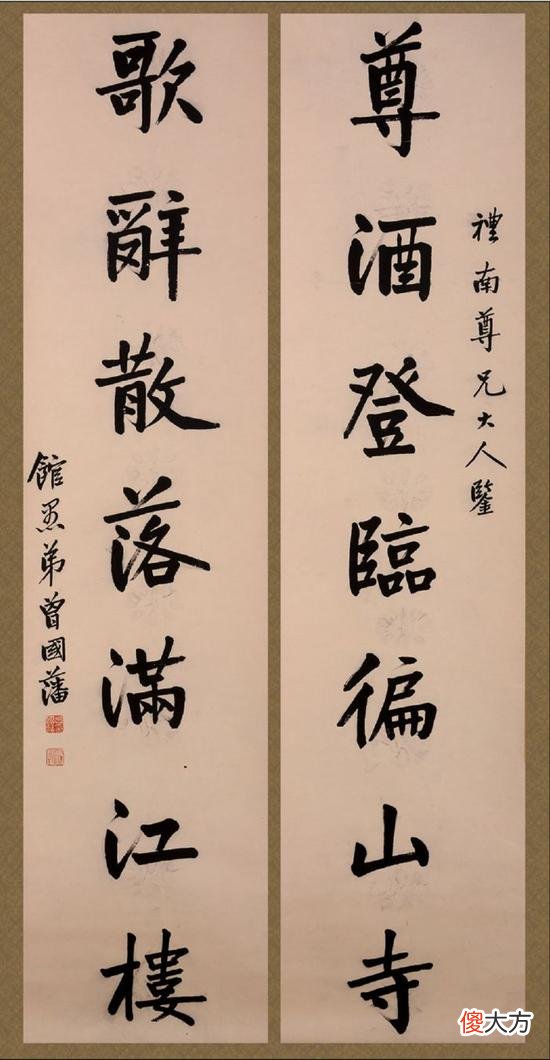 禮南尊兄大人鑒
尊酒登臨徧山寺
歌辭散落滿江樓
館愚弟曾國藩
傻大方